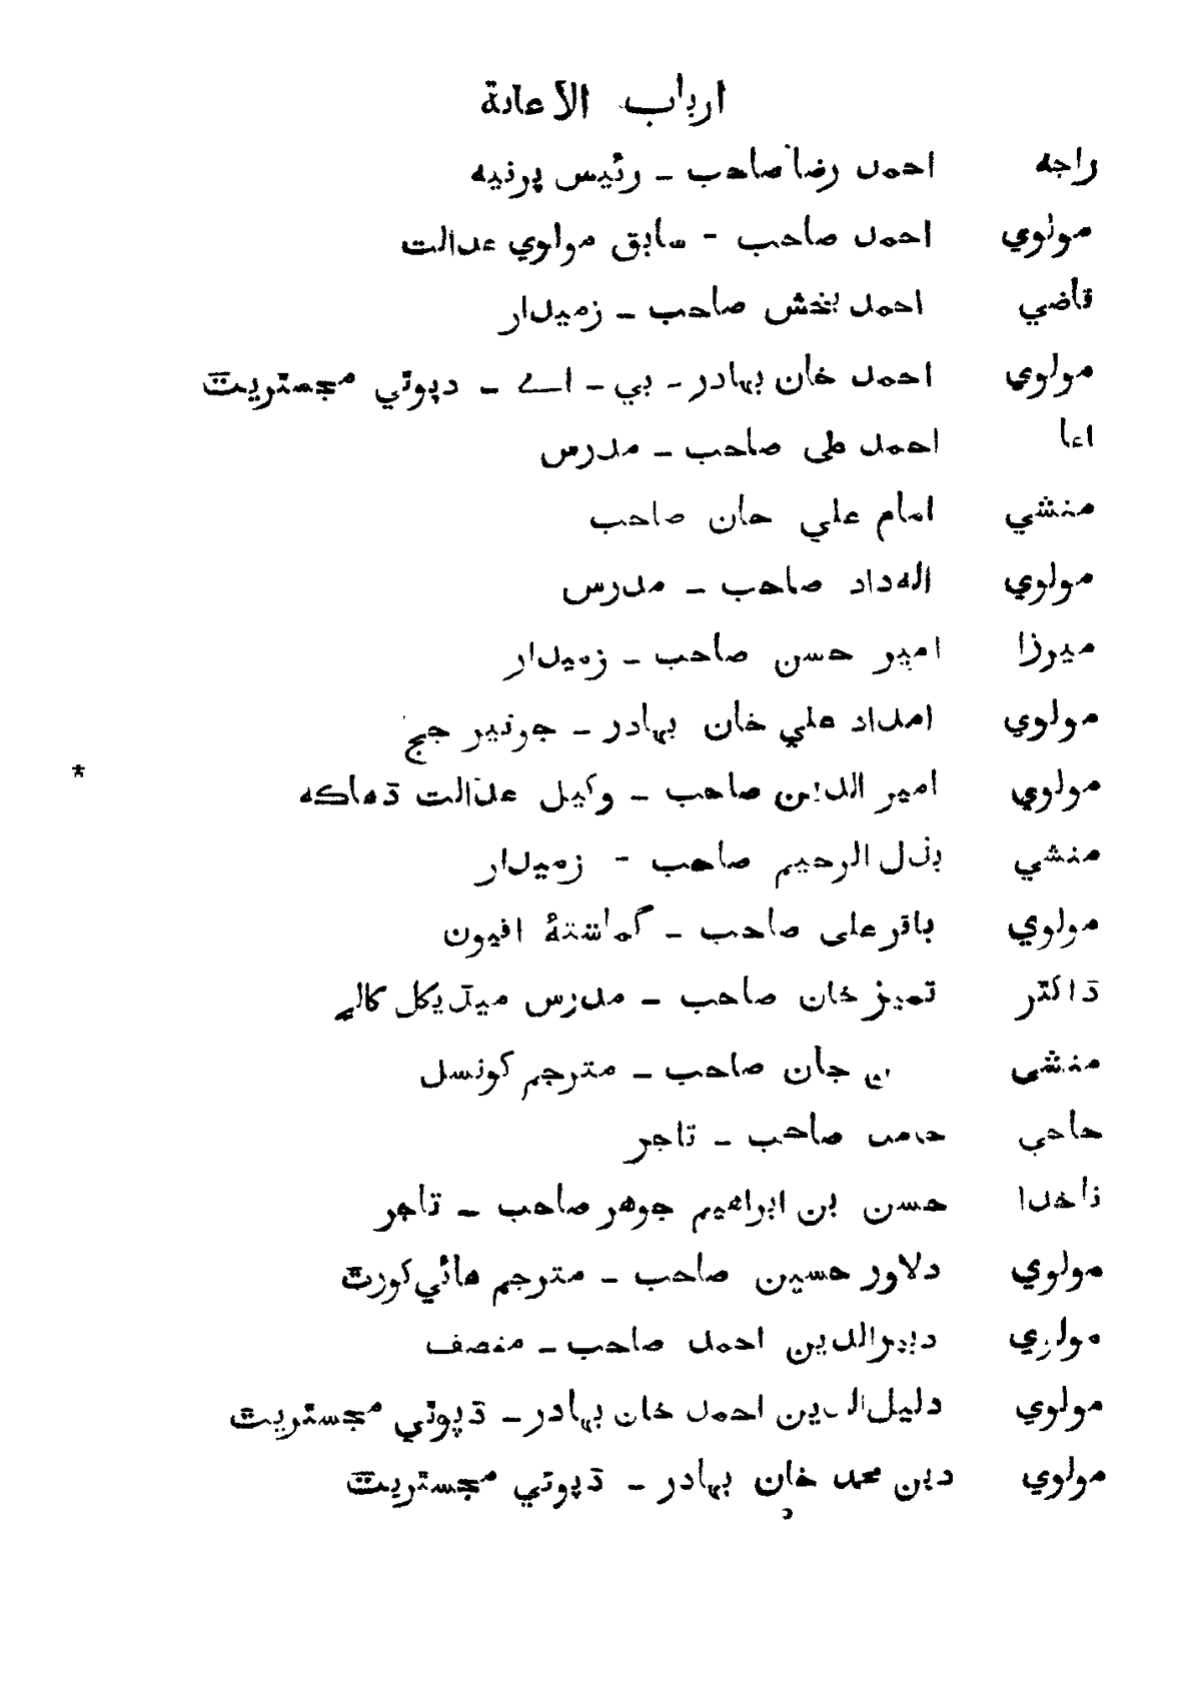 ارباب الاعانة
راجه احمد رضا صاحب - رئيس پرنيه
مولوي احمد صاحب - سابق مولوي عدالت
قاضي احمد بخش صاحب - زميدار
مولوي احمد خان بهادر - بي - اے - دپوتي مجستريت
اغا احمد علی صاحب - مدرس
منشي امام علي خان صاحب
مولوي اله داد صاحب - مدرس
ميرزا امير حسن صاحب - زميدار
مولوي امداد علي خان بهادر - جونير جج
مولوي امير الدين صاحب - وكيل عدالت ڐهاكه
منشي بذل الرحيم صاحب - زميدار
مولوي باقر علی صاحب - گماشتۀ افيون
ڐاكتر تميز خان صاحب - مدرس ميڐيكل كالج
منشی جان صاحب - مترجم كونسل
حاجي صاحب - تاجر
ناخدا حسن بن ابراهيم جوهر صاحب - تاجر
مولوي دلاور حسين صاحب - مترجم هائي كورت
مولوي دبيرالدين احمد صاحب - منصف
مولوي دليل الدين احمد خان بهادر - ڐپوتي مجستريت
مولوي دين محمد خان بهادر - ڐپوتي مجستريت